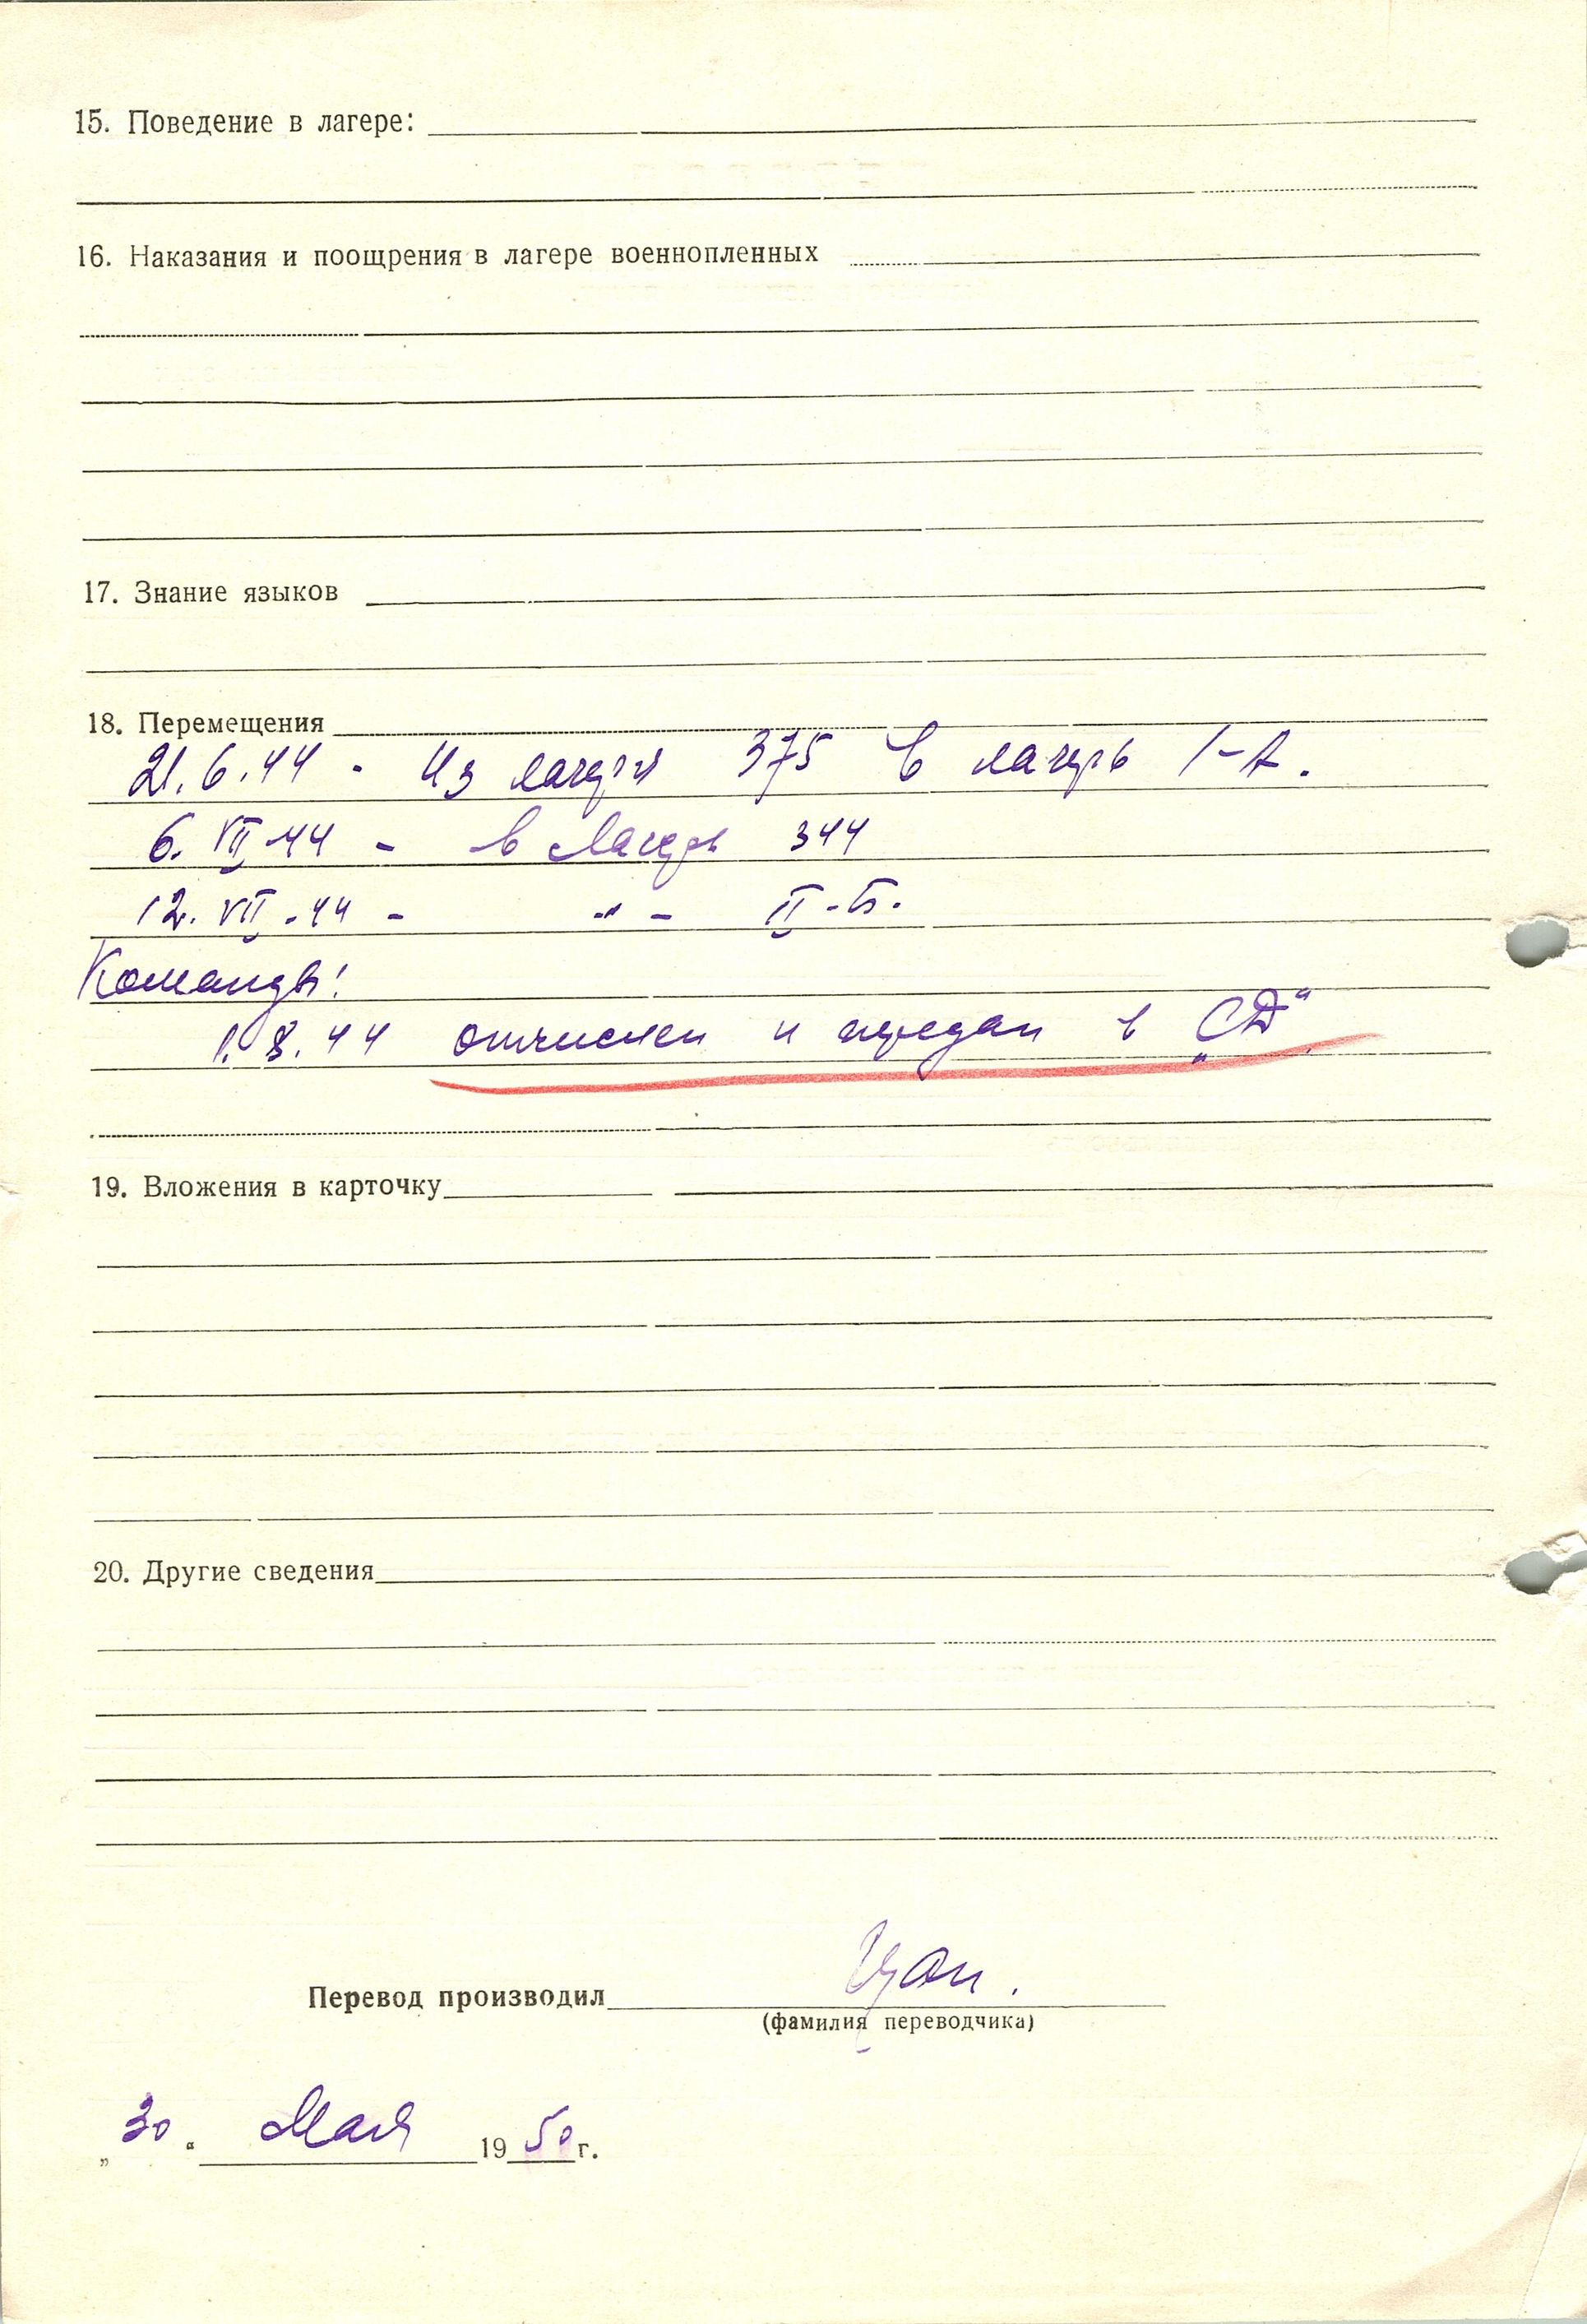 15. Поведение в лагере:
16. Наказания и поощрения в лагере военнопленных
17. Знание языков
18. Перемещения
21.6.44 - Из лагеря 375 в лагерь I-А.
6. VII-44 - в Лагерь 344
12. VII-44 - -"- II-Б.
Команды:
1.8.44 отчислен и передан в „СД“
19. Вложения в карточку
20. Другие сведения
Перевод производил
(фамилия переводчика)
„30“ Мая 1950 г.